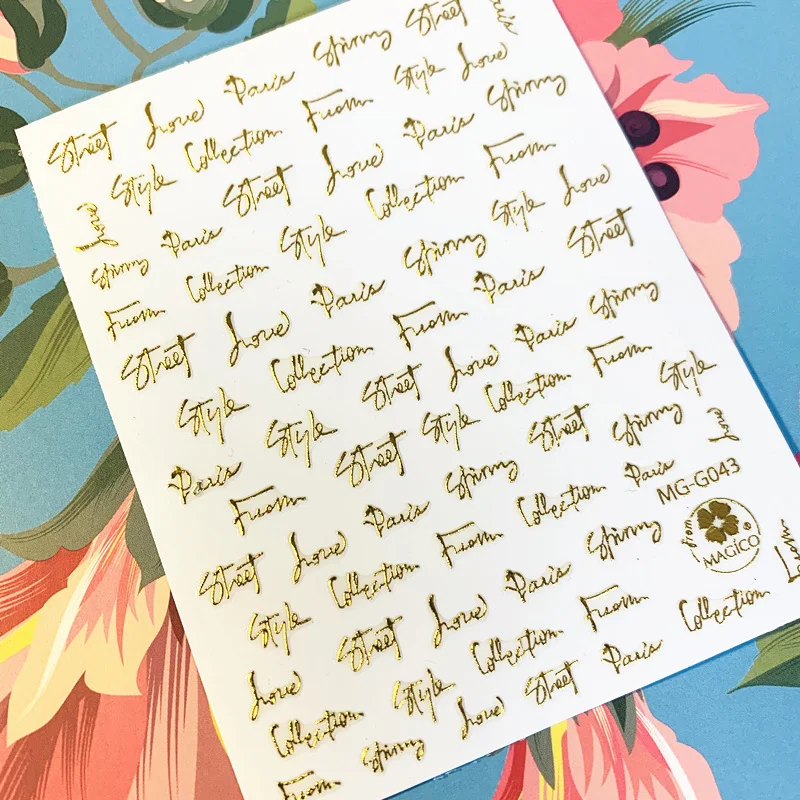 Street Love Paris Street Paris
Style Collection From Style Love
Love Street Love Paris
Paris Style Collection From
From Collection Style Love
Street Love From Paris Street
Style Collection Street Love Paris
Style Street Style Collection From Style
Paris From Street Love
Street Love Paris From Collection Paris
MG-G043
from
MAGICO®
Style Collection
Street Love Paris From
Love Style Collection From Collection
Collection Love Street Paris
From